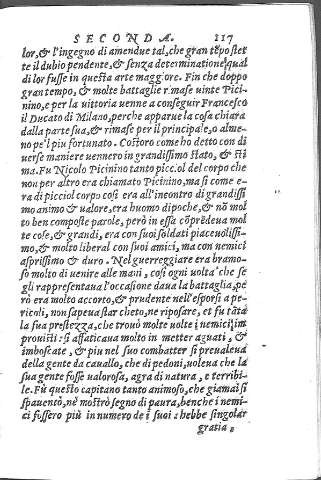 SECONDA. 117
lor, & l'ingegno di amendue tal, che gran tẽpo stet
te il dubio pendente, & senza determinatione, qual
di lor fusse in questa arte maggiore. Fin che doppo
gran tempo, & molte battaglie rimase uinte Pici-
nino, e per la uittoria uenne a conseguir Francesco
il Ducato di Milano, perche apparue la cosa chiara
dalla parte sua, & rimase per il principale, o alme-
no pe'l piu fortunato. Costoro come ho detto con di
uerse maniere uennero in grandissimo stato, & sti
ma. Fu Nicolo Picinino tanto piccol del corpo che
non per altro era chiamato Picinino, ma si come e-
ra di picciol corpo cosi era all'incontro di grandissi
mo animo & ualore, era huomo di poche, & nõ mol
to ben composte parole, però in esse cõprẽdeua mol
te cose, & grandi, era con suoi soldati piaceuolissi-
mo, & molto liberal con suoi amici, ma con nemici
asprissimo & duro. Nel guerreggiare era bramo-
so molto di uenire alle mani, cosi ogni uolta che se
gli rappresentaua l'occasione daua la battaglia, pe
rò era molto accorto, & prudente nell'esporsi a pe-
ricoli, non sapeua star cheto, ne riposare, et fu tãta
la sua prestezza, che trouò molte uolte i nemici im
prouisti: si affaticaua molto in metter aguati, &
imboscate, & piu nel suo combatter si preualeua
della gente da cauallo, che di pedoni, uoleua che la
sua gente fosse ualorosa, agra di natura, e terribi-
le. Fù questo capitano tanto animoso, che giamai si
spauentò, nè mostrò segno di paura, benche i nemi-
ci fossero più in numero de i suoi hebbe singolar
gratia